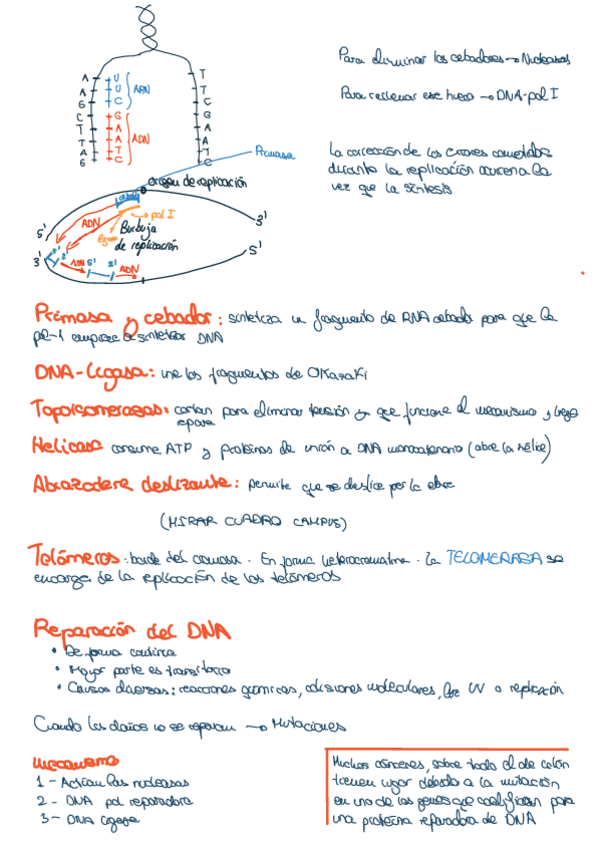 Para eliminar los cebadores → Nucleasas
Para rellenar ese hueco → DNA-pol I
La corrección de los errores cometidos
durante la replicación ocurren a la
vez que la síntesis
A U T
A U ARN T
G C C
C G G
T A ADN A
T A A
A T T
G C C
Primasa
origen de replicación
cebador
ADN
pol I
Burbuja
de replicación
5'
3'
3'
5'
ADN
5'
3'
ADN
Primasa y cebador: sintetiza un fragmento de RNA cebador para que la
pol-1 empiece a sintetizar DNA
DNA-ligasa: une los fragmentos de Okazaki
Topoisomerasas: cortan para eliminar tensión y que funcione el mecanismo y luego
repara
Helicasa consume ATP y proteínas de unión a DNA monocatenario (abre la hélice)
Abrazadera deslizante: permite que se deslice por la
(MIRAR CUADRO CAMPUS)
Telómeros: borde del cromosa. En forma heterocromatina. La TELOMERASA se
encarga de la replicación de los telómeros
Reparación del DNA
• De forma continua
• Mayor parte es transitorio
• Causas diversas: reacciones químicas, colisiones moleculares, UV o replicación
Cuando los daños no se reparan → Mutaciones
Mecanismo
1 - Actúan las nucleasas
2 - DNA pol reparadora
3 - DNA ligasa
Muchos cánceres, sobre todo el de colón
tienen lugar debido a la mutación
en uno de los genes que codifican para
una proteína reparadora de DNA